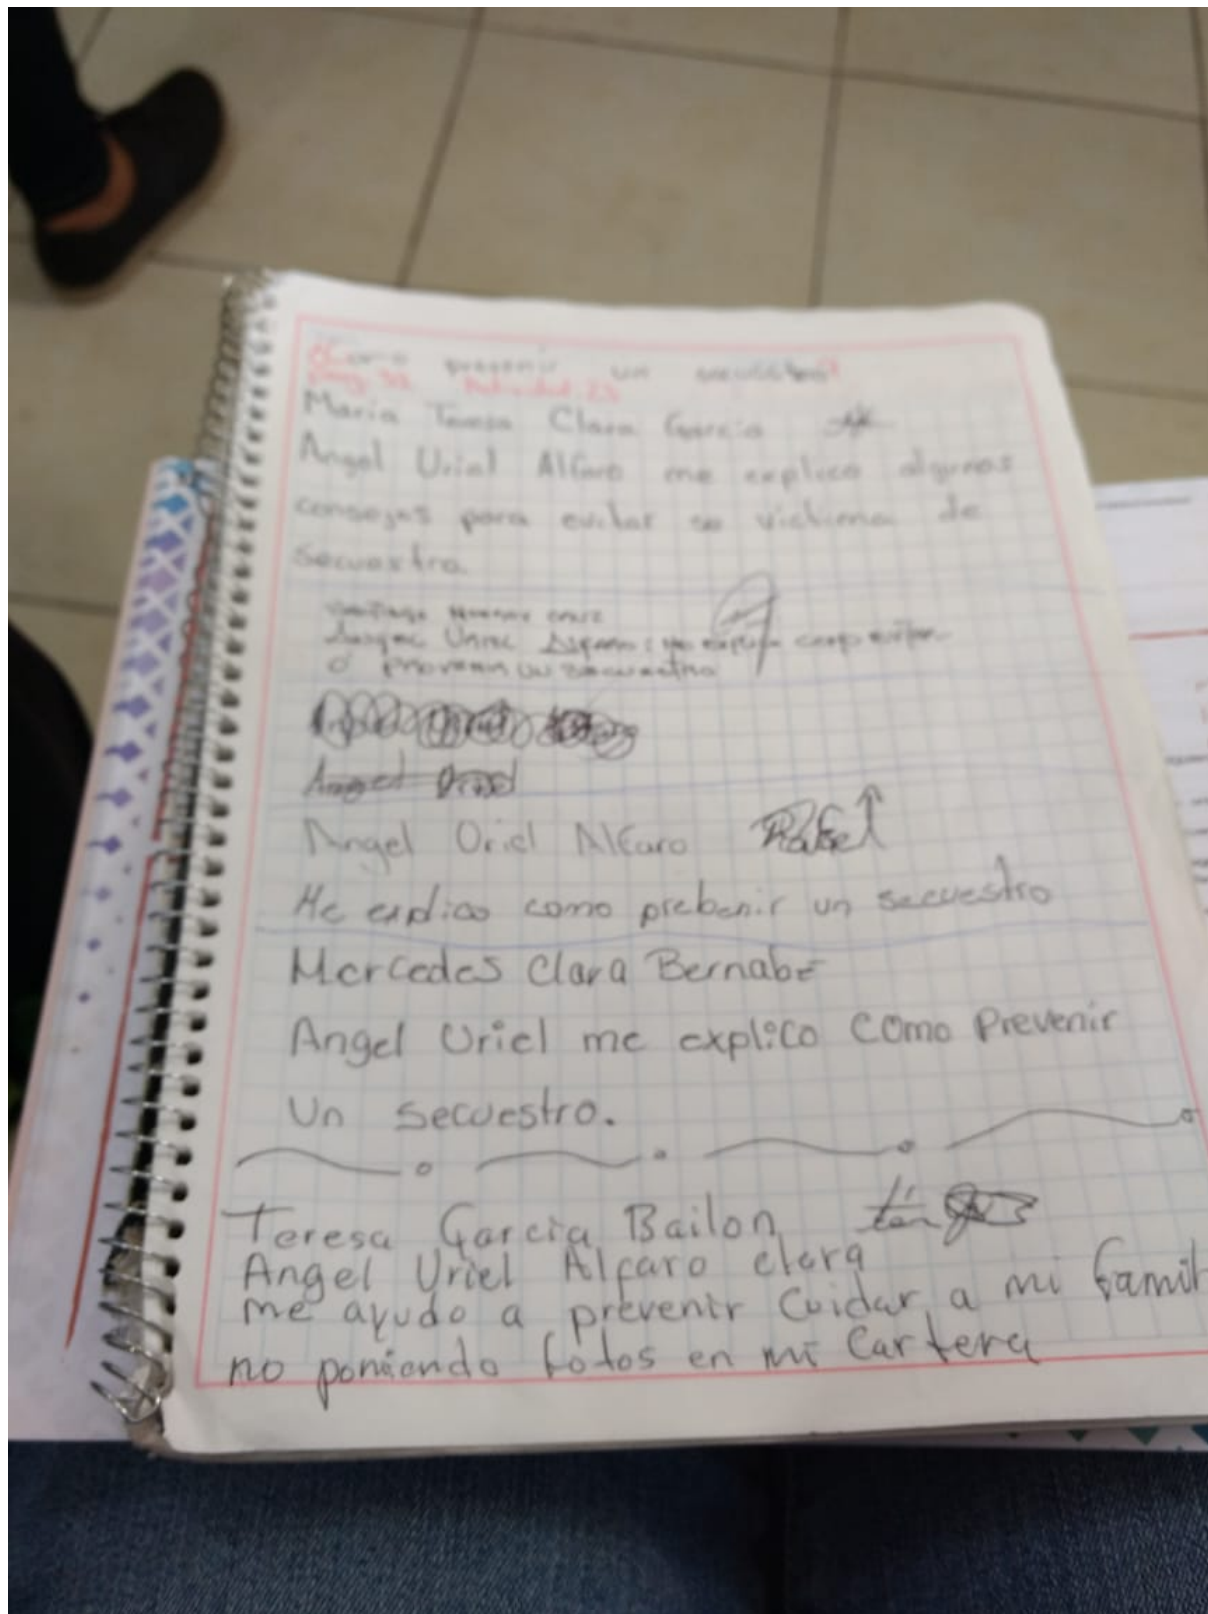 ¿Como prevenir un secuestro?
pag. 32 Actividad. 23
Maria Teresa Clara Garcia
Angel Uriel Alfaro me explico algunos
consejos para evitar se victima de
secuestro.
cruz
me explico como evitar
o prevenir un secuestro
Angel Uriel
Angel Oriel Alfaro Rafael
Me explico como prebenir un secuestro
Mercedes Clara Bernabe
Angel Uriel me explico como Prevenir
Un secuestro.
Teresa Garcia Bailon
Angel Uriel Alfaro clara
me ayudo a prevenir Cuidar a mi famil
no poniendo fotos en mi Cartera